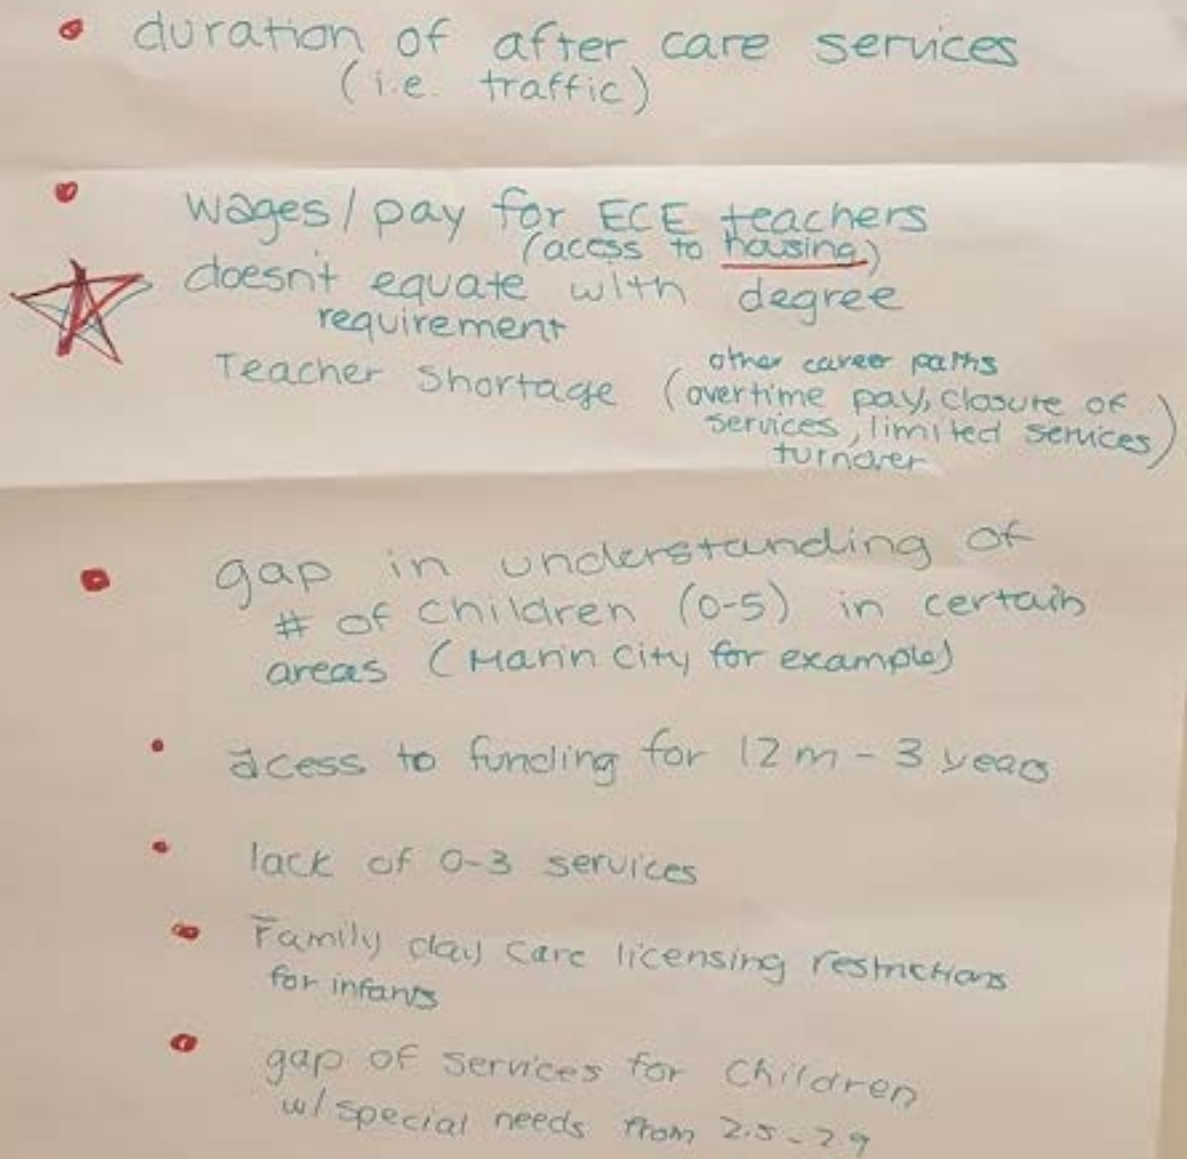 duration of after care services
(i.e. traffic)
wages/pay for ECE teachers
(acess to housing)
doesn't equate with degree
requirement
Teacher Shortage
other career paths
(overtime pay, closure of
services, limited services)
turnover
gap in understanding of
# of children (0-5) in certain
areas (Marin City for example)
acess to funding for 12m - 3 years
lack of 0-3 services
Family day care licensing restrictions
for infants
gap of services for children
w/ special needs from 2.5 - 2.9